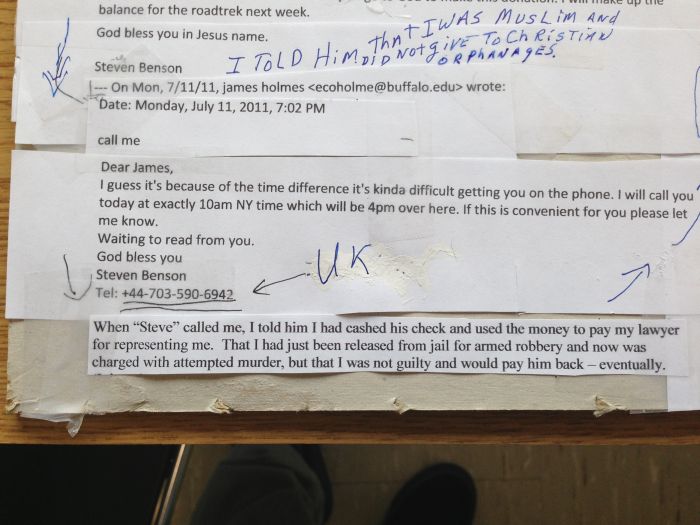 balance for the roadtrek next week.
God bless you in Jesus name.
Steven Benson
I TOLD HIM THAT I WAS MUSLIM AND
DID NOT GIVE TO CHRISTIAN
ORPHANAGES.
--- On Mon, 7/11/11, james holmes <ecoholme@buffalo.edu> wrote:
Date: Monday, July 11, 2011, 7:02 PM
call me
Dear James,
I guess it's because of the time difference it's kinda difficult getting you on the phone. I will call you
today at exactly 10am NY time which will be 4pm over here. If this is convenient for you please let
me know.
Waiting to read from you.
God bless you
Steven Benson
Tel: +44-703-590-6942
UK
When “Steve” called me, I told him I had cashed his check and used the money to pay my lawyer
for representing me.  That I had just been released from jail for armed robbery and now was
charged with attempted murder, but that I was not guilty and would pay him back – eventually.